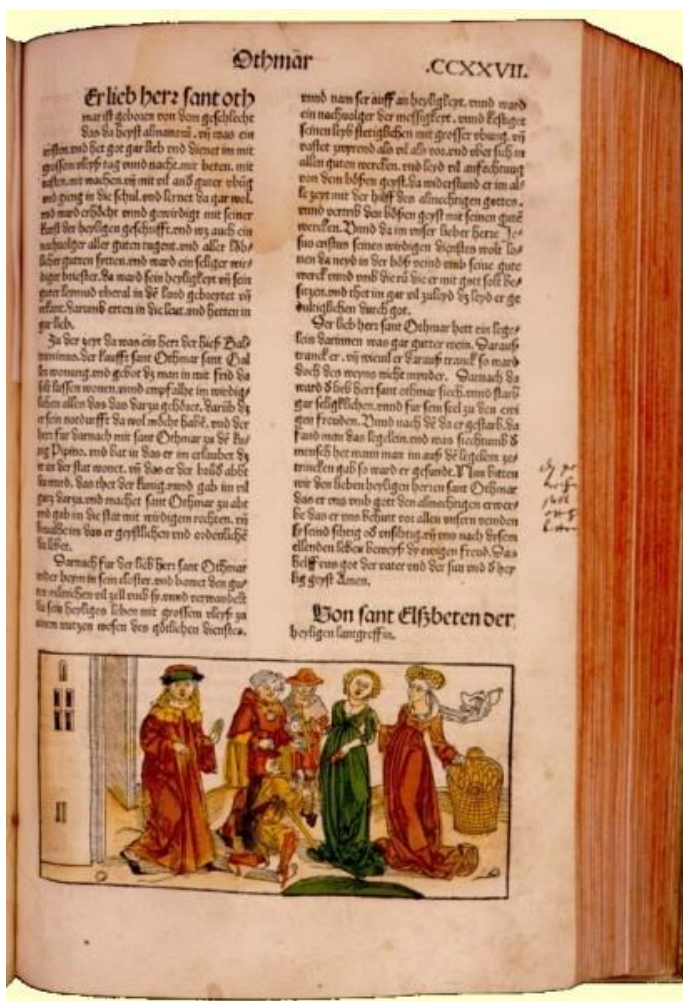 Othmar
.CCXXVII.
Er lieb herr sant oth
mar ist geborn von dem geschlecht
das da heyst was ein
vnd het got gar lieb vnd dienet im mit
grossem vleyß tag vnd nacht. mit beten. mit
vasten. mit wachen. vñ mit vil and guter
vnd gieng in die schul. vnd lernet da gar wol.
vnd ward erhöcht vnnd gewirdigt mit seiner
kunst der heyligen geschrifft. vnd wz auch ein
nachuolger aller guten tugent. vnd aller löb-
licher gutten sytten. vnd ward ein seliger wir-
diger briester. da ward sein heyligkeyt vñ sein
guter leymud vberal in dē land vñ
erkant. darumb erten in die leut. vnd hetten in
gar lieb.
Zu der zeyt da was ein herr der hieß
der kaufft sant Othmar sant Gal
len wonung. vnd gebot dz man in mit frid da
solt lassen wonen. vnnd empfalhe im wirdig-
lichen allen das das darzu gehöret. darūb dz
er sein notdurfft da wol möcht habē. vnd der
herr fur darnach mit sant Othmar zu dē kü-
nig Pipino. vnd bat in das er im erlaubet dz
er in der stat wonet. vñ das er der abbt
da wurd. das thet der künig. vnnd gab im vil
gutz darzu. vnd machet sant Othmar zu abt
vnd gab in die stat mit wirdigem rechten. vñ
empfalhe im das er geystlichen vnd ordenlichē
da lebet.
Darnach fur der lieb herr sant Othmar
wider heym in sein closter. vnd bawet den gu-
ten münichen vil zell vmb sy. vnnd verwandelt
da sein heyliges leben mit grossem vleyß zu
einem nutzen wesen des götlichen dienstes.
vnnd nam ser auff an heyligkeyt. vnnd ward
ein nachuolger der messigkeyt. vnnd kestiget
seinen leyb stetiglichen mit grosser vbung. vñ
vastet zwyrend als vil als vor. vnd vbet sich in
allen guten wercken. vnd leyd vil anfechtung
von dem bösen geyst. da widerstund er im al-
le zeyt mit der hilff des almechtigen gottes.
vnnd vertrib den bösen geyst mit seinen gutē
wercken. Vnnd da im vnser lieber herre Je-
sus cristus seinen wirdigen diensten wolt lo-
nen da neyd in der böß veind vmb seine gute
werck vnnd vmb die rü die er mit gott solt be-
sitzen. vnd thet im gar vil zuleyd dz leyd er ge
dultiglichen durch got.
Der lieb herr sant Othmar hett ein lege-
lein darinnen was gar gutter wein. Darauß
tranck er. vñ wieuil er darauß tranck so ward
doch des weyns nicht minder. Darnach da
ward d lieb herr sant othmar siech. vnnd starb
gar seligklichen. vnnd fur sein seel zu den ewi
gen freuden. Vnnd nach dē da er gestarb. da
fand man das legelein. vnd was siechtumb d
mensch het wann man im auß dē legelein ze-
trincken gab so ward er gesundt. Nun bitten
wir den lieben heyligen herren sant Othmar
das er vns vmb gott den almechtigen erwer-
be das er vns behüt vor allen vnsern veinden
sy seind sihtig od vnsihtig. vñ vns nach disem
ellenden leben beweyß dy ewigen freud. Das
helff vns got der vater vnd der sun vnd d hey
lig geyst Amen.
Von sant Elßbeten der
heyligen lantgreffin.